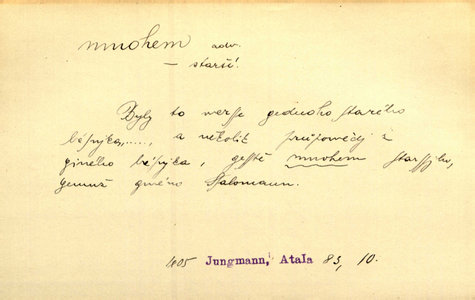 mnohem adv.
– starší
Byly to werse gednoho starého
básnjka,....., a několik průpowědj z
giného básnjka, gesstě mnohem starssjho,
gemuž gméno Salomaun.
1805 Jungmann, Atala 83, 10.